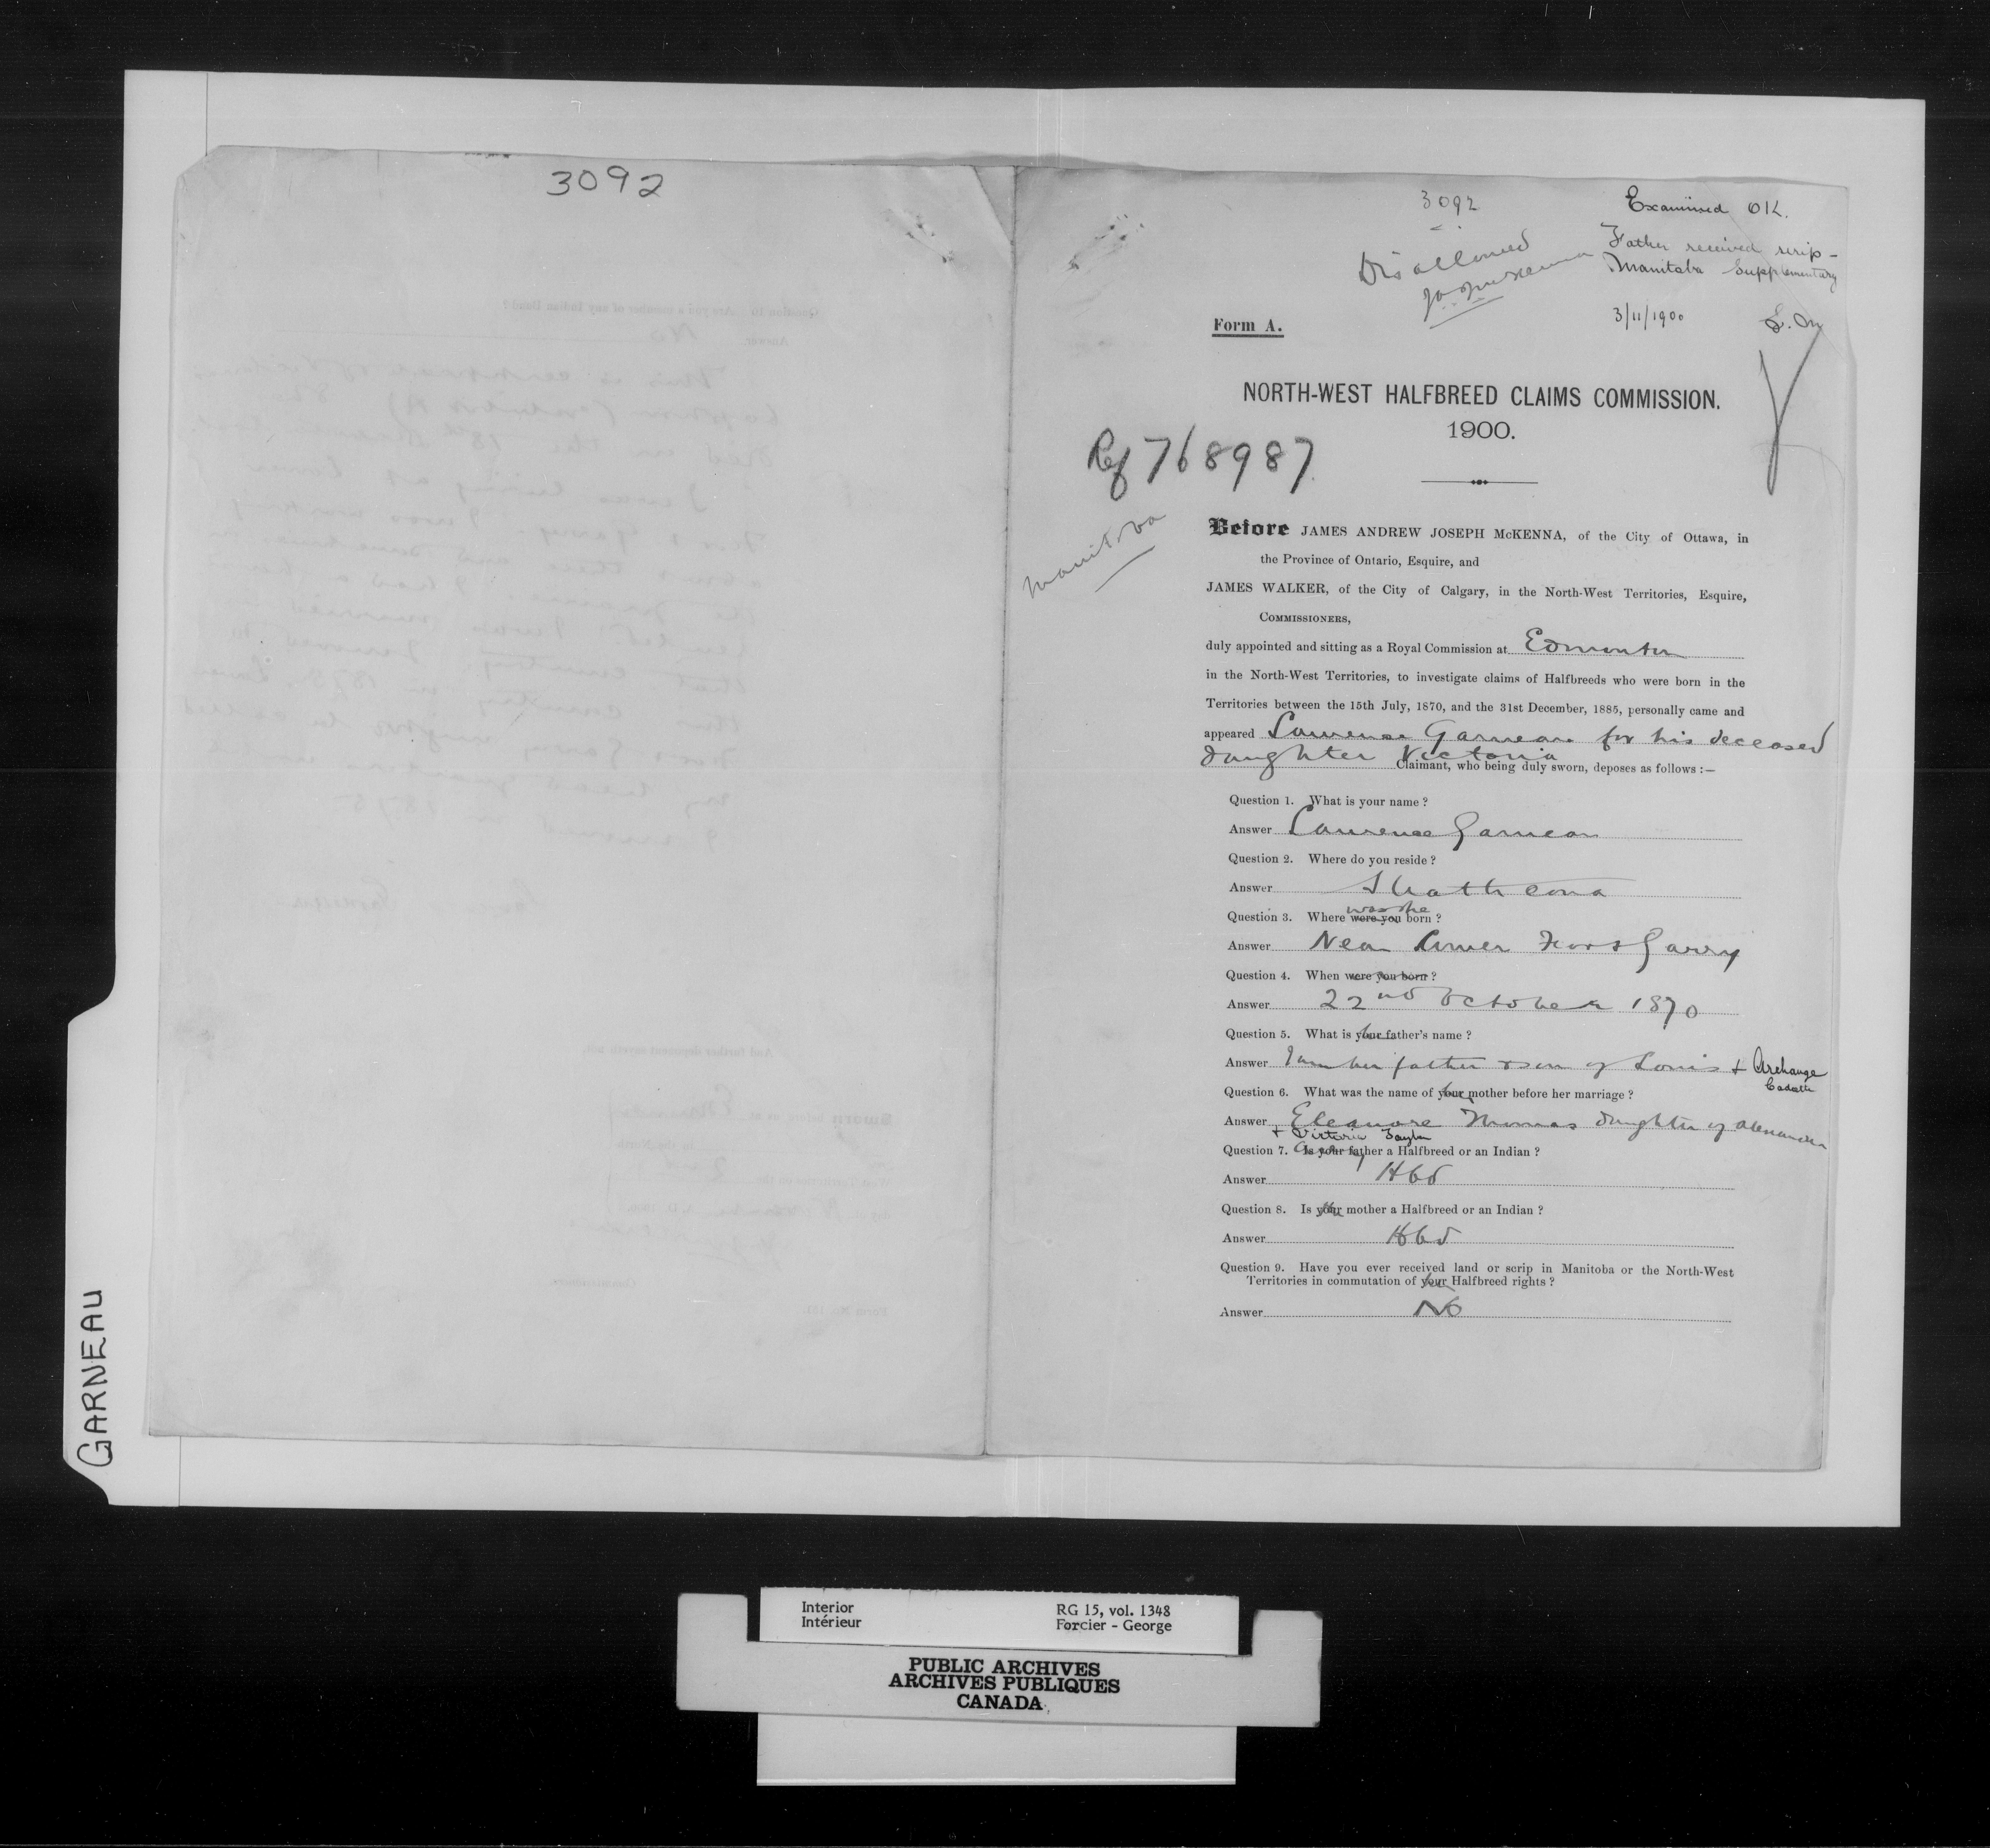 3092
3092
Examined OK.
Father received scrip -
Manitoba Supplementary
Disallowed
3/11/1900
Form A.
NORTH-WEST HALFBREED CLAIMS COMMISSION.
1900.
Ref 768987
Manitoba
Before JAMES ANDREW JOSEPH McKENNA, of the City of Ottawa, in
the Province of Ontario, Esquire, and
JAMES WALKER, of the City of Calgary, in the North-West Territories, Esquire,
COMMISSIONERS,
duly appointed and sitting as a Royal Commission at Edmonton
in the North-West Territories, to investigate claims of Halfbreeds who were born in the
Territories between the 15th July, 1870, and the 31st December, 1885, personally came and
appeared Lawrence Garneau for his deceased
daughter Victoria
Claimant, who being duly sworn, deposes as follows :—
Question 1. What is your name ?
Answer Lawrence Garneau
Question 2. Where do you reside ?
Answer Strathcona
was she
Question 3. Where were you born ?
Answer Near Lower Fort Garry
Question 4. When were you born ?
Answer 22nd October 1870
Question 5. What is your father's name ?
Answer I am her father & son of Louis + Archange
Cadotte
Question 6. What was the name of your mother before her marriage ?
Answer Eleanore Thomas daughter of Alexander
+ Victoria Taylor
Question 7. Is your father a Halfbreed or an Indian ?
Answer Hbd
Question 8. Is your mother a Halfbreed or an Indian ?
Answer Hbd
Question 9. Have you ever received land or scrip in Manitoba or the North-West
Territories in commutation of your Halfbreed rights ?
Answer No
GARNEAU
Interior
Intérieur
RG 15, vol. 1348
Forcier - George
PUBLIC ARCHIVES
ARCHIVES PUBLIQUES
CANADA